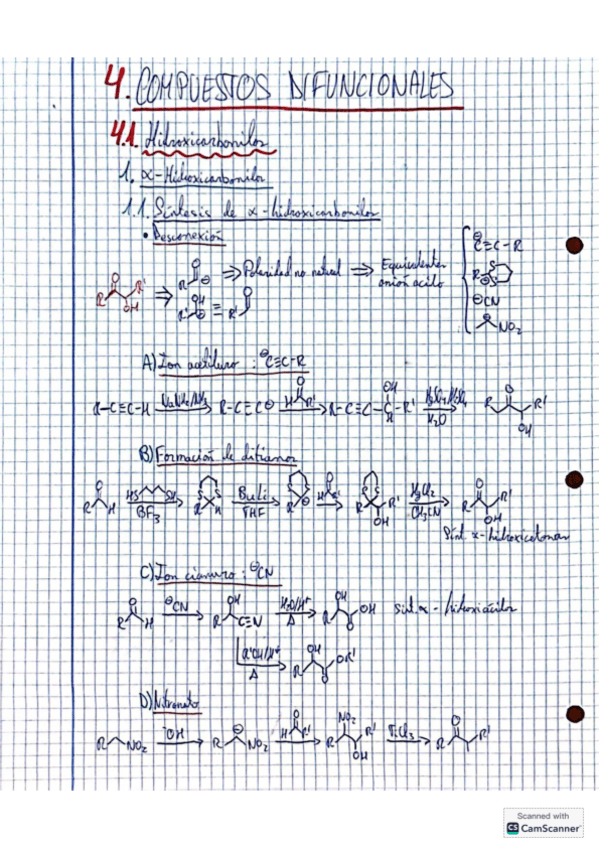 4. COMPUESTOS DIFUNCIONALES
4.1. Hidroxicarbonilos
1. α-Hidroxicarbonilos
1.1. Síntesis de α-hidroxicarbonilos
• Desconexión
⇒ Polaridad no natural ⇒ Equivalentes anión acilo
⊖C≡C-R
⊖CN
NO₂
A) Ion acetiluro : ⊖C≡C-R
R-C≡C-H → R-C≡C⊖ → R-C≡C-C-R' H₂O
B) Formación de ditianos
HS SH BF₃ BuLi THF HgCl₂ CH₃CN
Sínt α-hidroxicetonas
C) Ion cianuro : ⊖CN
⊖CN C≡N H₂O/H⁺ Δ OH sint. α-hidroxiácidos
R'OH/H⁺ Δ OR'
D) Nitronato
R NO₂ ⁻OH R NO₂ H R' NO₂ R R' OH TiCl₃ R R'
Scanned with
CS CamScanner